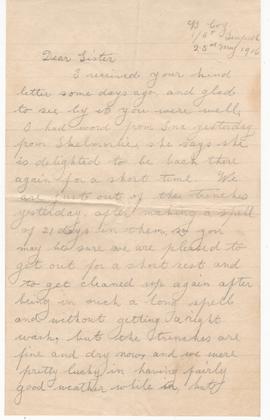 B Coy
1/6th
25th May 1916
Dear Sister
I received your kind
letter some days ago, and glad
to see by it you were well.
I had word from Ina yesterday
from Skelmorlie, she says she
is delighted to be back there
again for a short time. We
are just out of the trenches
yesterday, after making a spell
of 21 days in them, so you
may be sure we are pleased to
get out for a short rest and
to get cleaned up again after
being in such a long spell
and without getting a right
wash, but the trenches are
fine and dry now, and we were
pretty lucky in having fairly
good weather while in, but